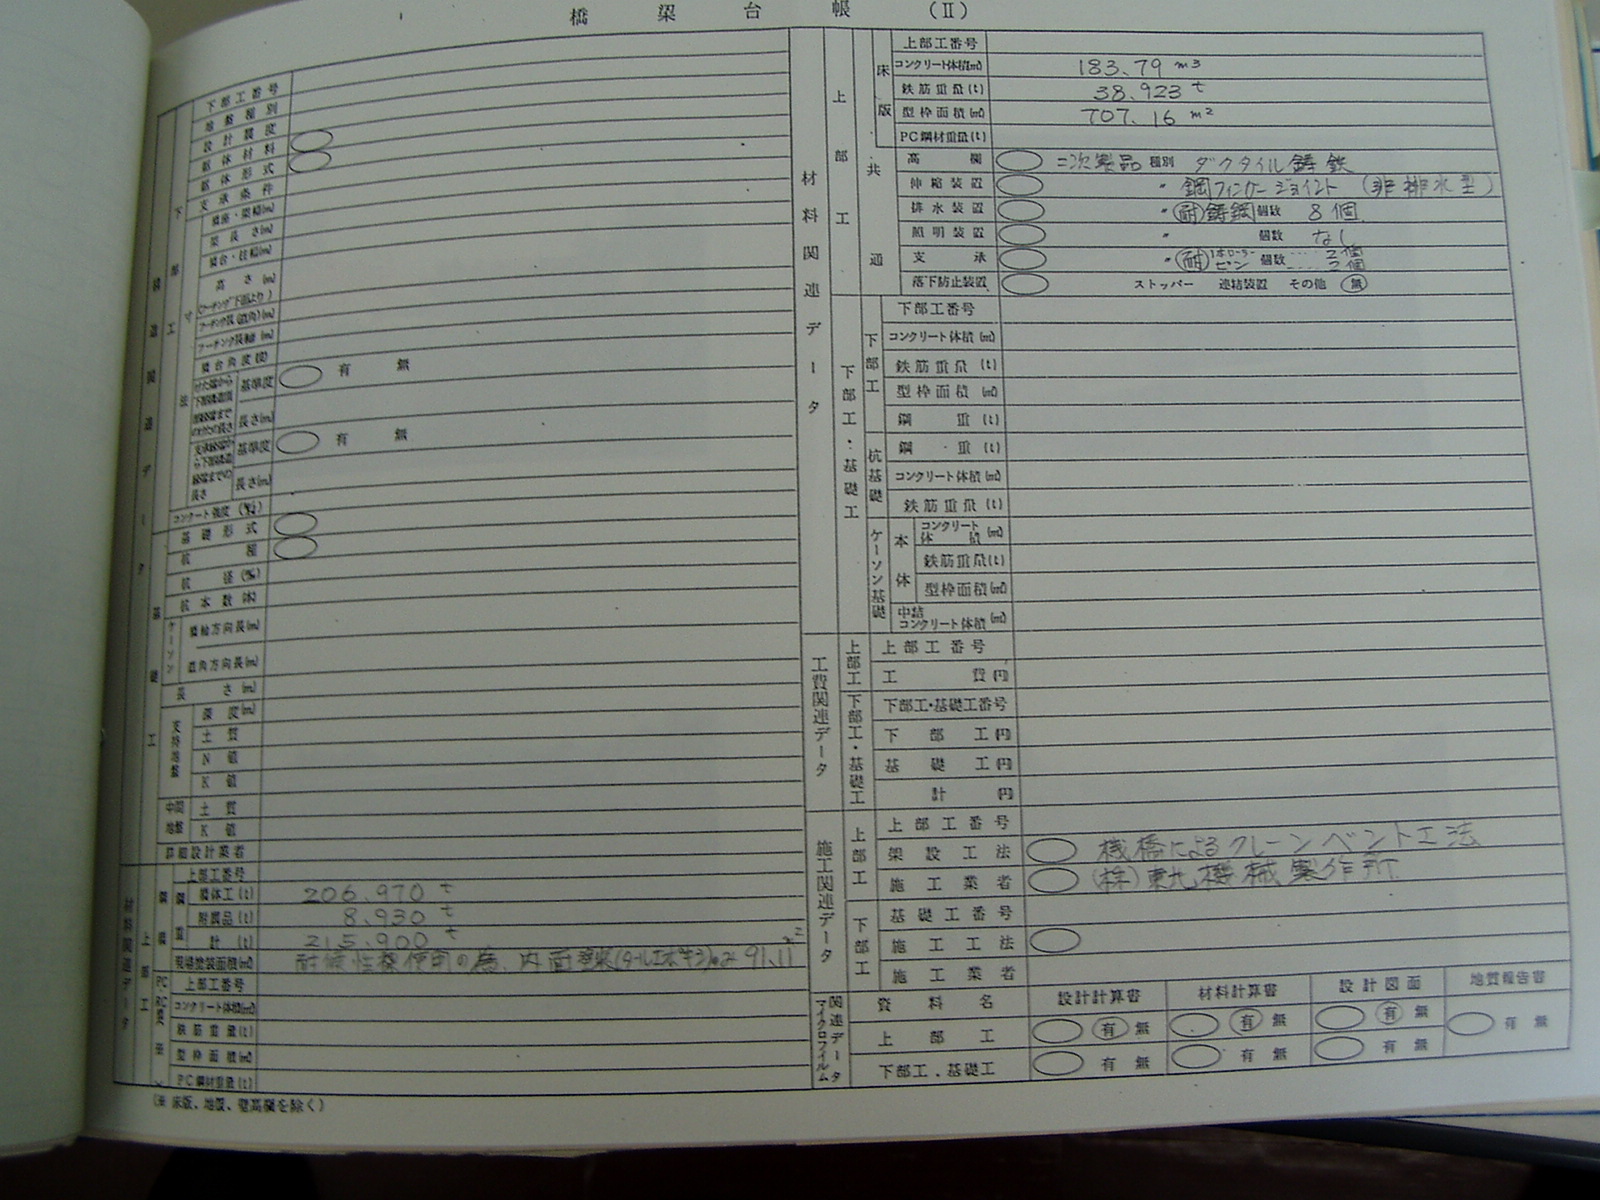 橋梁台帳 (II)
下部工番号
地盤種別
設計震度
躯体材料
躯体形式
支承条件
高さ(m)
(フーチング下面より)
橋台角度(度)
基準度 有 無
長さ(m)
基準度 有 無
長さ(m)
コンクリート強度
基礎形式
杭種
杭径
杭本数(本)
ケーソン
橋軸方向長(m)
直角方向長(m)
長さ(m)
支持地盤
深度(m)
土質
N値
K値
中間地盤
土質
K値
詳細設計業者
材料関連データ
上部工
鋼橋
鋼重
上部工番号
橋体工(t) 206.970 t
附属品(t) 8.930 t
計(t) 215.900 t
現場塗装面積(㎡) 耐候性鋼使用の為、内面塗装(タールエポキシ)のみ 91.11 m2
上部工番号
コンクリート体積(㎥)
鉄筋重量(t)
型枠面積(㎡)
PC鋼材重量(t)
(※ 床版、地覆、壁高欄を除く)
材料関連データ
上部工
床版
上部工番号
コンクリート体積(㎥) 183.79 m3
鉄筋重量(t) 38.923 t
型枠面積(㎡) 707.16 m2
PC鋼材重量(t)
共通
高欄 二次製品 種別 ダクタイル鋳鉄
伸縮装置 〃 鋼フィンガージョイント (非排水型)
排水装置 〃 耐 鋳鋼 個数 8個
照明装置 〃 個数 なし
支承 〃 耐 1本ローラー 個数 ‥‥ 2個
ピン ‥‥ 2個
落下防止装置 ストッパー 連結装置 その他 無
下部工・基礎工
下部工
下部工番号
コンクリート体積(㎥)
鉄筋重量(t)
型枠面積(㎡)
鋼重(t)
杭基礎
鋼重(t)
コンクリート体積(㎥)
鉄筋重量(t)
ケーソン基礎
本体
コンクリート体積(㎥)
鉄筋重量(t)
型枠面積(㎡)
中詰コンクリート体積(㎥)
工費関連データ
上部工
上部工番号
工費(円)
下部工・基礎工
下部工・基礎工番号
下部工(円)
基礎工(円)
計(円)
施工関連データ
上部工
上部工番号
架設工法 桟橋によるクレーンベント工法
施工業者 (株)東北機械製作所
下部工
基礎工番号
施工工法
施工業者
関連データマイクロフィルム
資料名 設計計算書 材料計算書 設計図面 地質報告書
上部工 有 無 有 無 有 無 有 無
下部工・基礎工 有 無 有 無 有 無